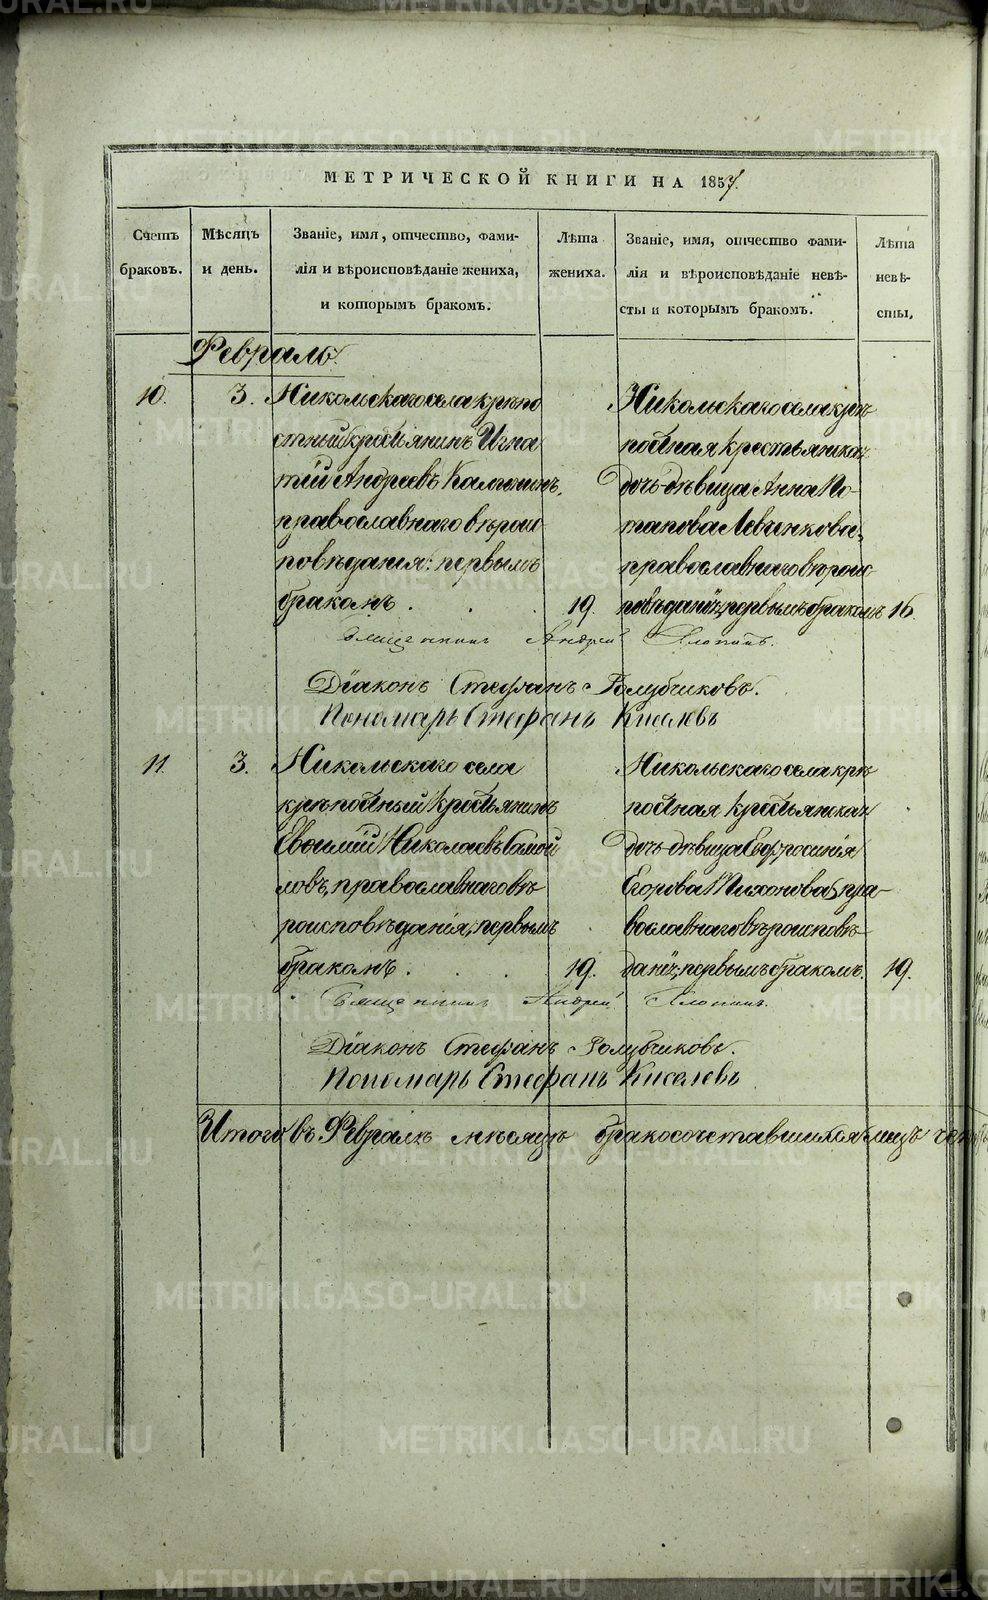 METRIKI.GASO-URAL.RU
МЕТРИЧЕСКОЙ КНИГИ НА 1857.
Счетъ браковъ.
Мѣсяцъ и день.
Званіе, имя, отчество, фами-
лія и вѣроисповѣданіе жениха,
и которымъ бракомъ.
Лѣта жениха.
Званіе, имя, отчество фами-
лія и вѣроисповѣданіе невѣ-
сты и которымъ бракомъ.
Лѣта невѣ-
сты.
Февраль.
10.
3.
Никольскаго села крѣпо
стный крестьянинъ Игна
тій Андреевъ
православнаго вѣроис
повѣданія: первымъ
бракомъ . . .
19.
Никольскаго села крѣ
постная крестьянская
дочь-дѣвица Анна По-
тапова Левинкова,
православнаго вѣроис
повѣданія, первымъ бракомъ
16.
Священникъ Андрей
Діаконъ Стефанъ Голубчиковъ.
Пономарь Стефанъ Киселевъ
11.
3.
Никольскаго села
крѣпостный крестьянинъ
Евѳимій Николаевъ Самой
ловъ, православнаго вѣ
роисповѣданія, первымъ
бракомъ . . .
19.
Никольскаго села крѣ
постная крестьянская
дочь-дѣвица Евфросинія
Егорова Тихонова, пра-
вославнаго вѣроисповѣ
данія, первымъ бракомъ.
19.
Священникъ Андрей
Діаконъ Стефанъ Голубчиковъ.
Пономарь Стефанъ Киселевъ
Итого въ Февралѣ мѣсяцѣ бракосочетавшихся лицъ